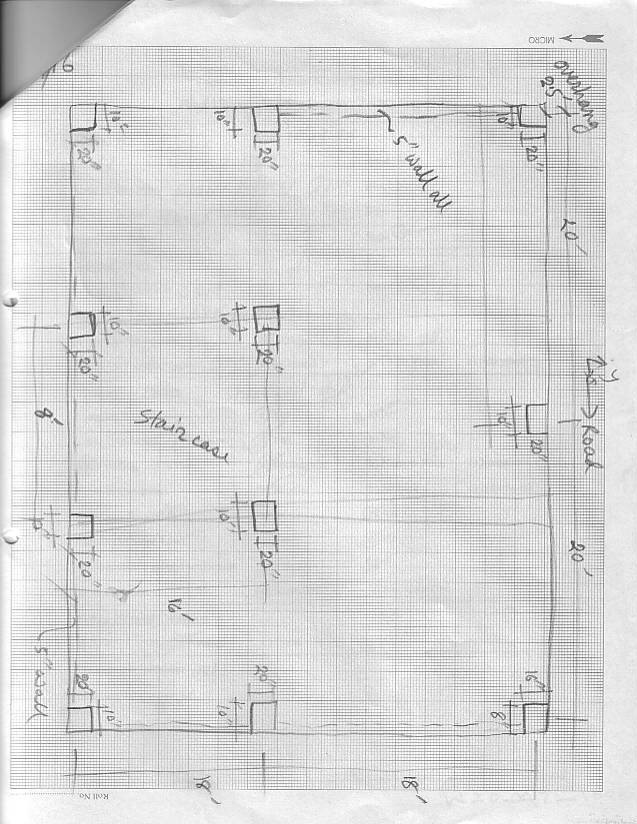 MICRO
overhang
2.5'
10"
20"
10"
20"
10"
20"
5" wall all
20'
10"
20"
10"
20"
y
x
Road
10"
20"
8'
Staircase
10"
20"
20"
20'
16'
5" wall
20"
10"
20"
10"
16"
8"
18'
18'
Roll No